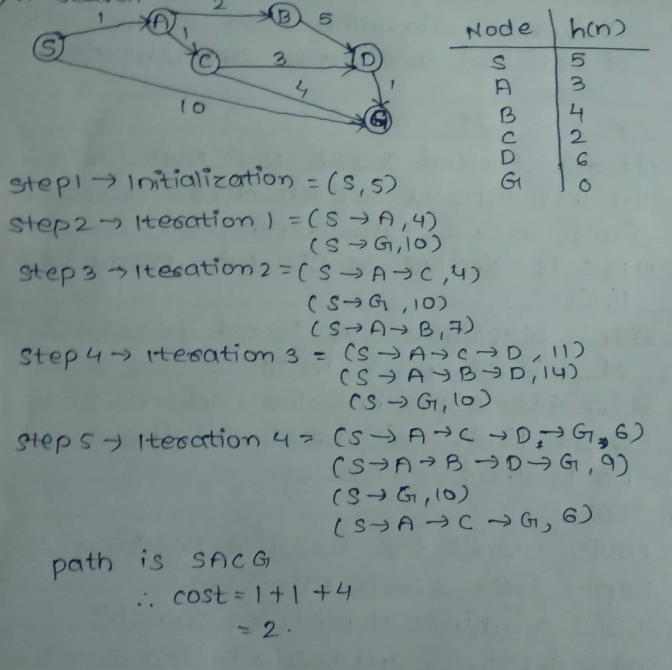 S
1
A
2
B
5
1
C
3
D
4
1
10
G
Node h(n)
S 5
A 3
B 4
C 2
D 6
G 0
Step1 → Initialization = (S,5)
Step2 → Iteration 1 = (S → A, 4)
(S → G, 10)
Step 3 → Iteration 2 = (S → A → C, 4)
(S → G, 10)
(S → A → B, 7)
Step 4 → Iteration 3 = (S → A → C → D, 11)
(S → A → B → D, 14)
(S → G, 10)
Step 5 → Iteration 4 = (S → A → C → D, → G, 6)
(S → A → B → D → G, 9)
(S → G, 10)
(S → A → C → G, 6)
path is SACG
∴ cost = 1+1+4
= 2.